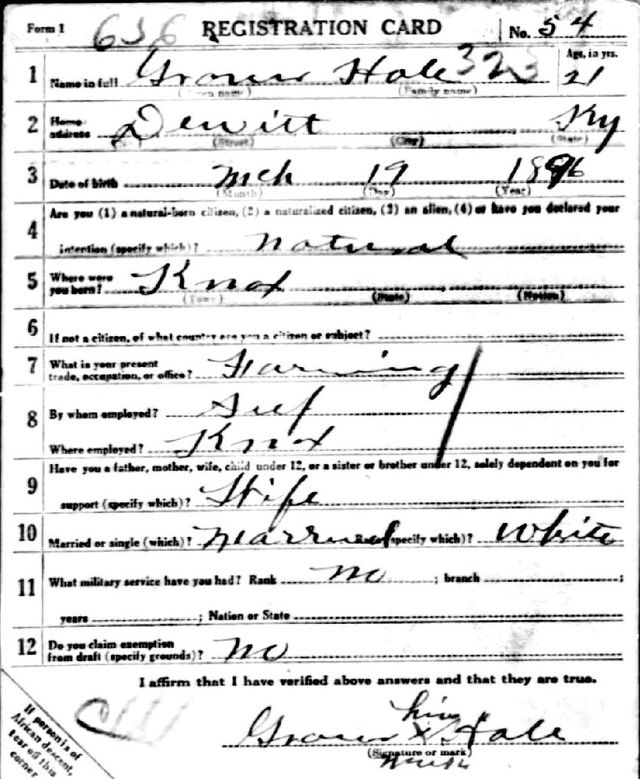 Form 1 636 REGISTRATION CARD No. 54
1 Name in full Grover Hale 323 Age, in yrs. 21
(Given name) (Family name)
2 Home address Dewitt Ky
(Street) (City) (State)
3 Date of birth Mch 19 1896
(Month) (Day) (Year)
4 Are you (1) a natural-born citizen, (2) a naturalized citizen, (3) an alien, (4) or have you declared your
intention (specify which)? Natural
5 Where were you born? Knox
(Town) (State) (Nation)
6 If not a citizen, of what country are you a citizen or subject?
7 What is your present trade, occupation, or office? Farming
8 By whom employed? Self
Where employed? Knox
9 Have you a father, mother, wife, child under 12, or a sister or brother under 12, solely dependent on you for
support (specify which)? Wife
10 Married or single (which)? Married Race (specify which)? White
11 What military service have you had? Rank No ; branch ;
years ; Nation or State
12 Do you claim exemption from draft (specify grounds)? No
I affirm that I have verified above answers and that they are true.
his
Grover X Hale
(Signature or mark)
mark
If person is of
African descent,
tear off this
corner